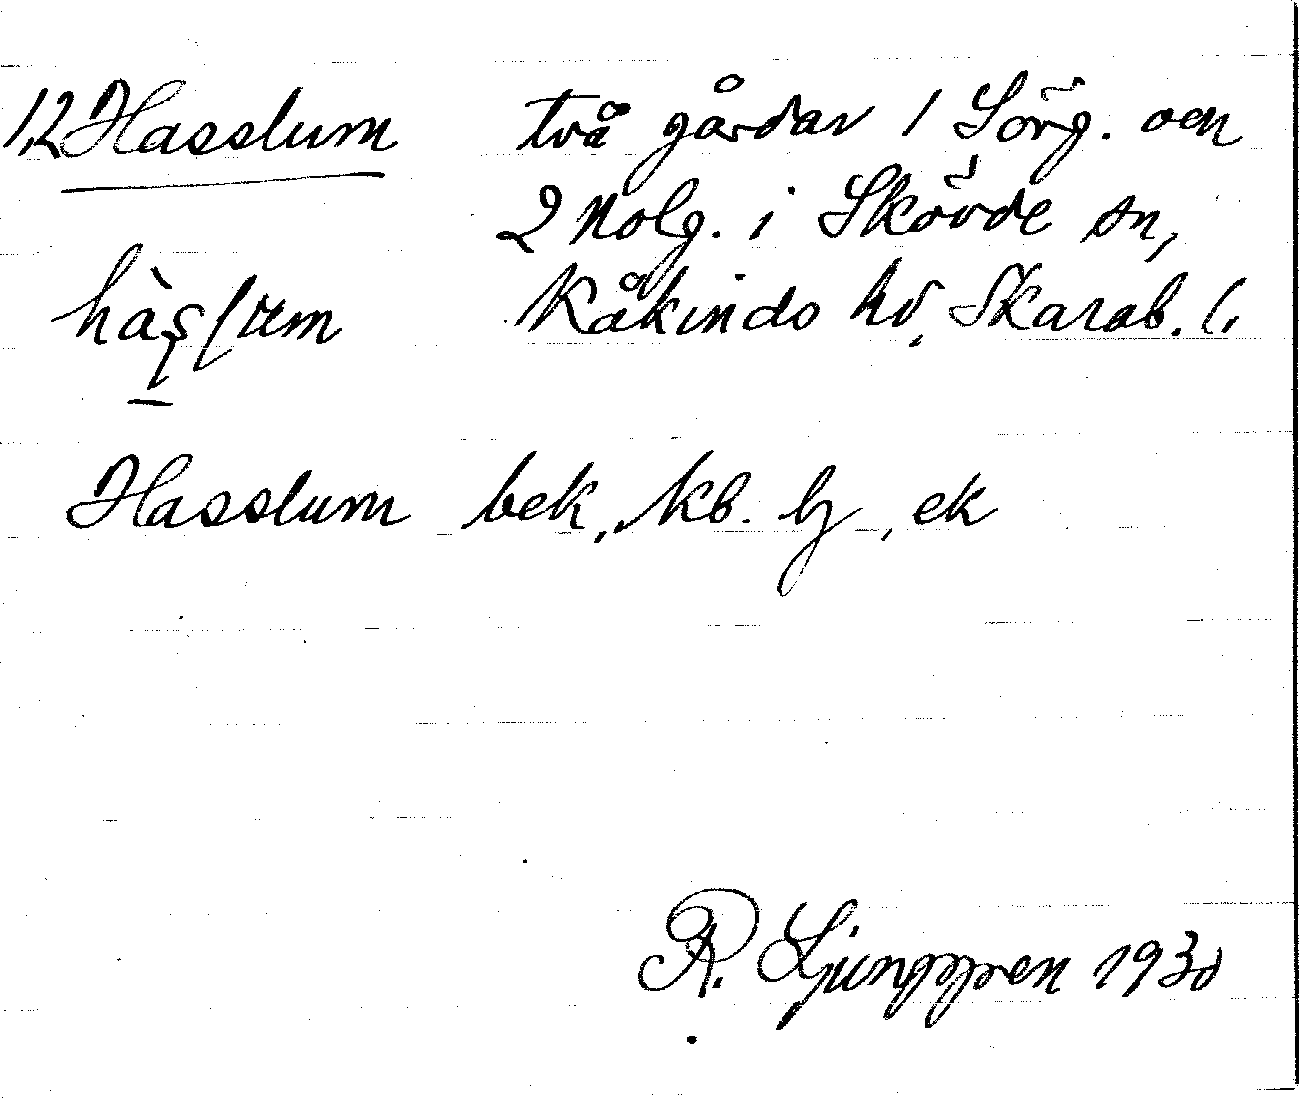 1,2 Hasslum två gårdar 1 Sörg. och
2 Nolg. i Skövde sn,
Kåkinds hd, Skarab. l.
Hasslum bek, kb. lj, ek
R. Ljunggren 1930